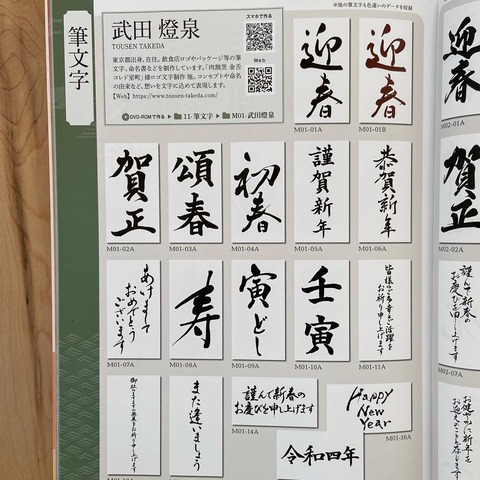 ※他の筆文字も色違いのデータを収録
筆文字
武田 燈泉
TOUSEN TAKEDA
スマホで作る
Web
東京都出身、在住。飲食店ロゴやパッケージ等の筆
文字、命名書などを制作しています。「肉割烹 金舌
コレド室町」様ロゴ文字制作 他。コンセプトや命名
の由来など、想いを文字に込めて表現します。
【Web】https://www.tousen-takeda.com/
DVD-ROMで作る
11-筆文字
M01-武田燈泉
迎春
M01-01A
迎春
M01-01B
迎春
M02-01A
賀正
M01-02A
頌春
M01-03A
初春
M01-04A
謹賀新年
M01-05A
恭賀新年
M01-06A
賀正
M02-02A
あけまして
おめでとう
ございます
M01-07A
寿
M01-08A
寅どし
M01-09A
壬寅
M01-10A
皆様のご多幸とご活躍を
お祈り申し上げます
M01-11A
謹んで新春の
お慶びを申し上げます
M02-07A
また逢いましょう
謹んで新春の
お慶びを申し上げます
M01-14A
Happy
New
Year
M01-16A
令和四年
お健やかに新年を